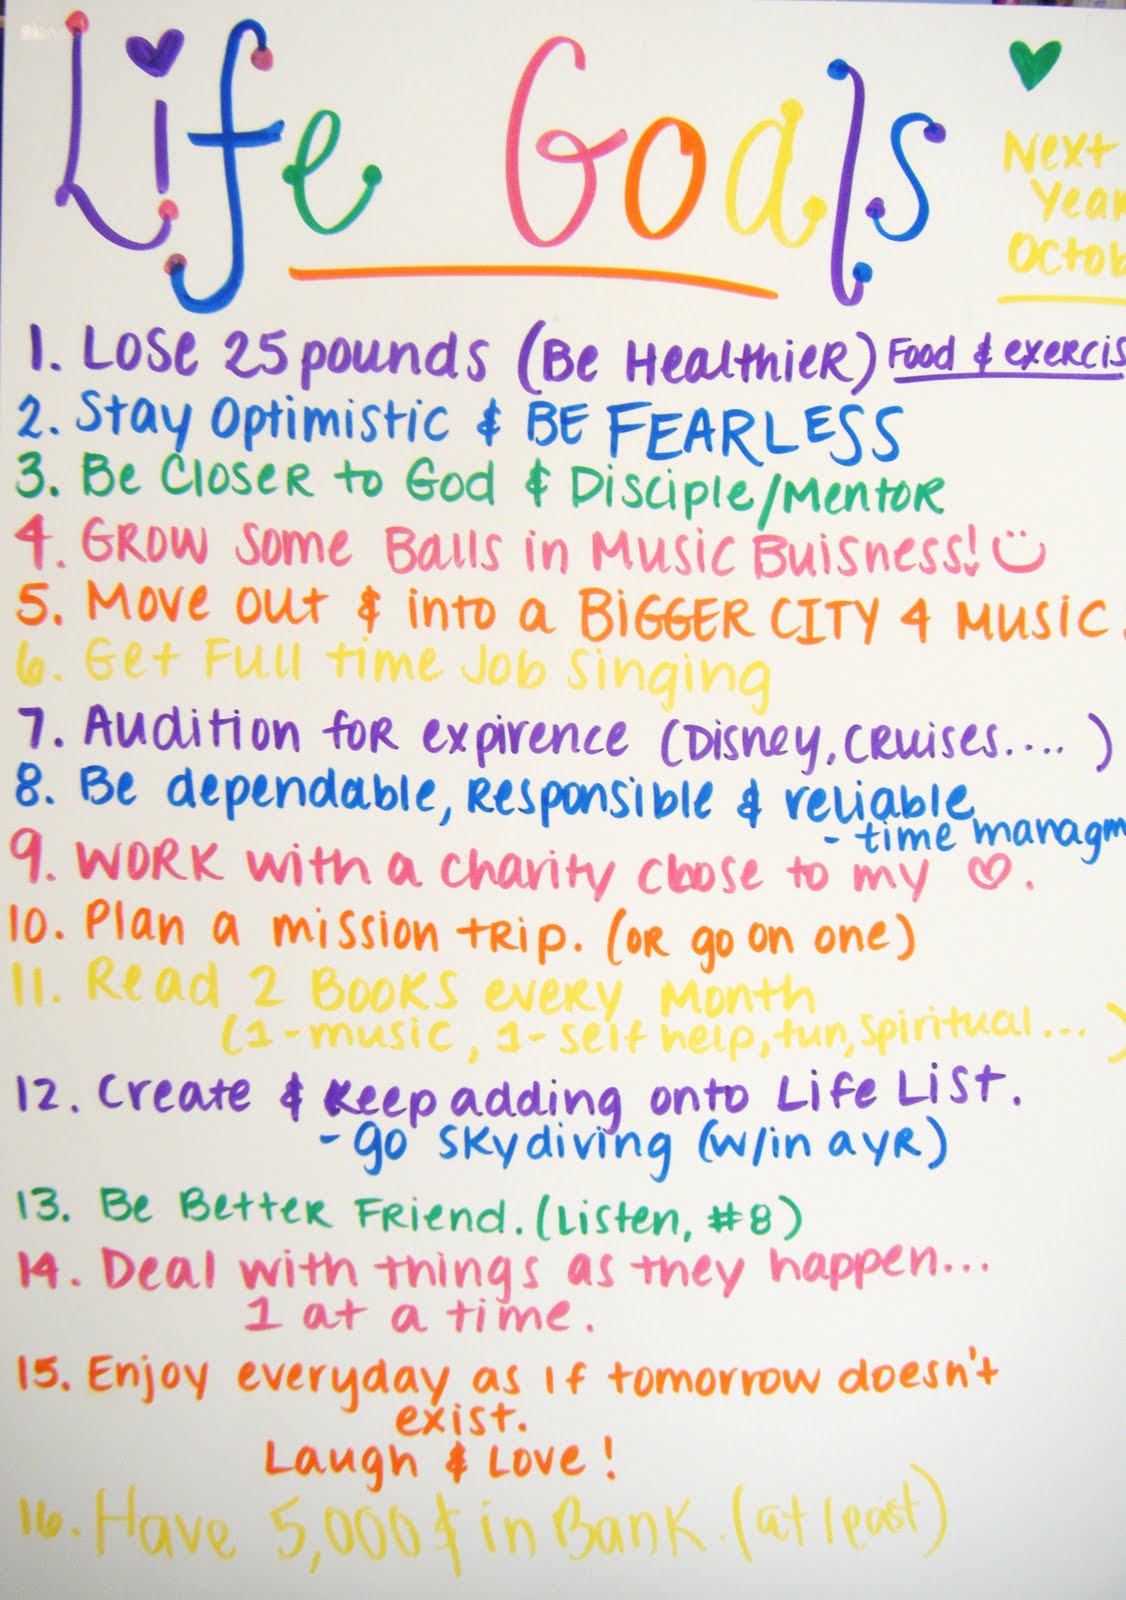 Life Goals
Next
Year
1. Lose 25 pounds (Be Healthier) Food & exercis
2. Stay Optimistic & BE FEARLESS
3. Be Closer to God & Disciple/Mentor
4. GROW Some Balls in Music Buisness!
5. Move out & into a BIGGER CITY 4 MUSIC.
6. Get Full time Job Singing
7. Audition for expirence (Disney, Cruises.... )
8. Be dependable, Responsible & reliable
- time managm
9. WORK with a charity close to my ♡.
10. Plan a mission trip. (or go on one)
11. Read 2 Books every Month
(1-music, 1-self help, fun, spiritual... )
12. Create & Keep adding onto Life List.
- go Skydiving (w/in a yr)
13. Be Better Friend. (Listen, #8)
14. Deal with things as they happen...
1 at a time.
15. Enjoy everyday as if tomorrow doesn't
exist.
Laugh & Love!
16. Have 5,000$ in Bank. (at least)